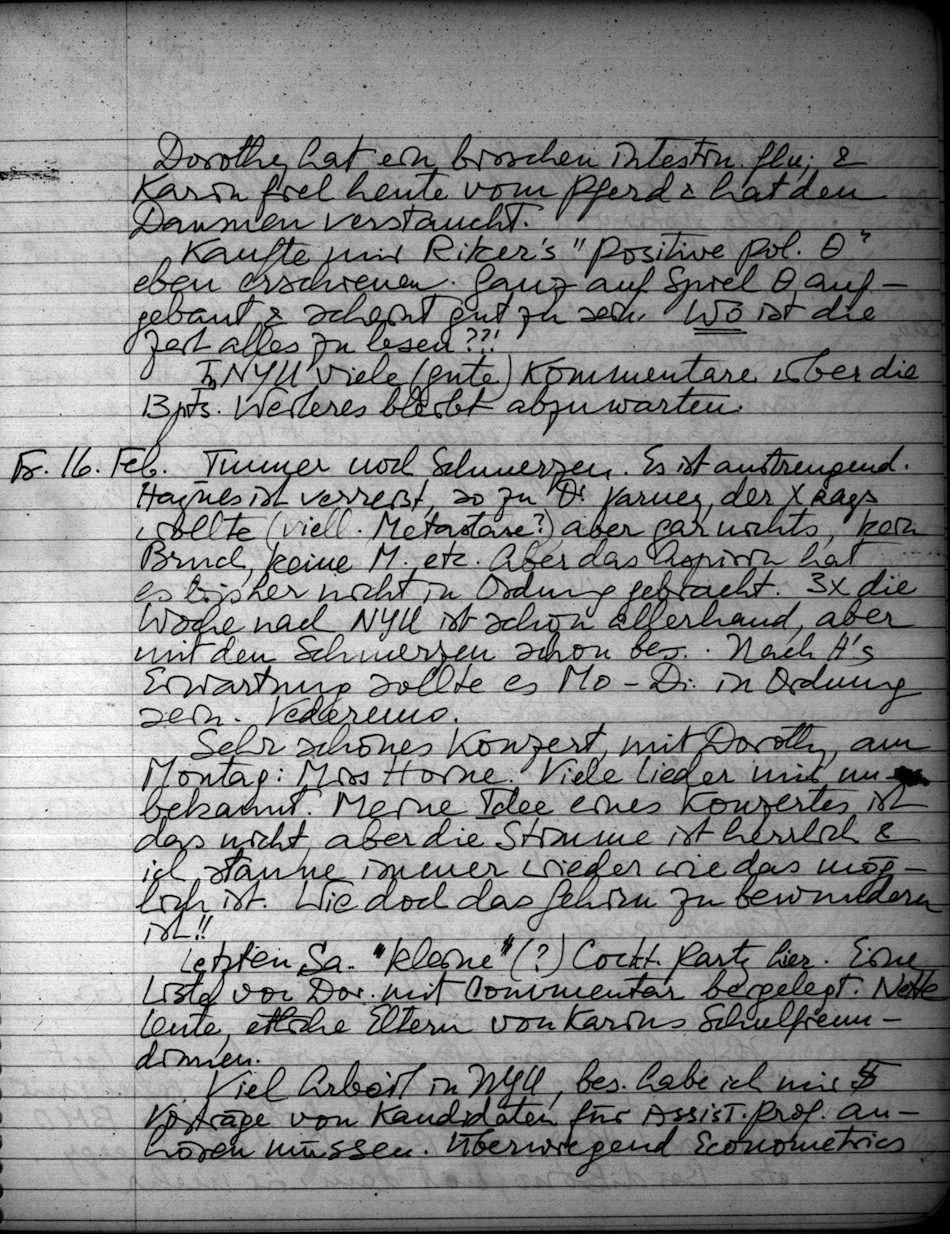 Dorothy hat ein bisschen intestin. flu; &
Karin fiel heute vom Pferd & hat den
Daumen verstaucht.
Kaufte mir Riker's "Positive Pol. θ"
eben erschienen. Ganz auf Spiel θ auf-
gebaut & scheint gut zu sein. Wo ist die
Zeit alles zu lesen??!
In NYU viele (gute) Kommentare über die
13 pts. Weiteres bleibt abzuwarten.
Fr. 16. Feb. Immer noch Schmerzen. Es ist anstrengend.
Haynes ist verreist, so zu Dr. Varney, der X rays
wollte (viell. Metastase?) aber gar nichts, kein
Bruch, keine M. etc. Aber das Aspirin hat
es bisher nicht in Ordnung gebracht. 3x die
Woche nach NYU ist schon allerhand, aber
mit den Schmerzen schon bes. . Nach H's
Erwartung sollte es Mo - Di. in Ordnung
sein. Vederemo.
Sehr schönes Konzert, mit Dorothy, am
Montag: Miss Horne. Viele Lieder mir un-
bekannt. Meine Idee eines Konzertes ist
das nicht, aber die Stimme ist herrlich &
ich staune immer wieder wie das mög-
lich ist. Wie doch das Gehirn zu bewundern
ist!!
Letzten Sa. "kleine" (?) Cockt. Party hier. Eine
Liste von Dor. mit Commentar beigelegt. Nette
Leute, etliche Eltern von Karins Schulfreun-
dinnen.
Viel Arbeit in NYU, bes. habe ich mir 5
Vorträge von Kandidaten für Assist. Prof. an-
hören müssen. Überwiegend Econometrics